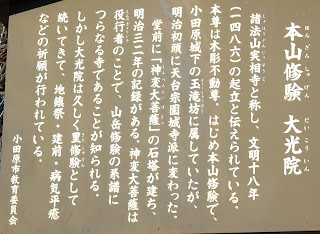 本山修験 大光院
ほんざんしゅげん だいこういん
諸法山実相寺と称し、文明十八年
(一四八六)の起立と伝えられている。
本尊は木彫不動尊。はじめ本山修験で、
小田原城下の玉滝坊に属していたが、
明治初頭に天台宗園城寺派に変わった。
堂前に「神変大菩薩」の石碑が建ち、
明治三二年の記録がある。神変大菩薩は
役行者のことで、山岳修験の系譜に
つらなる寺であることが知られる。
しかし大光院は久しく里修験として
続いてきて、地鎮祭、建前、病気平癒
などの祈願が行われている。
小田原市教育委員会